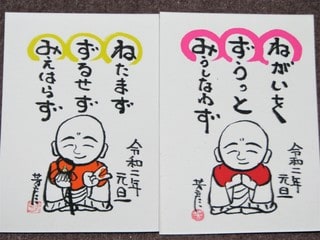 ねたまず
ずるせず
みえはらず
令和二年
元旦
ねがいごと
ずうっと
みうしなわず
令和二年
元旦